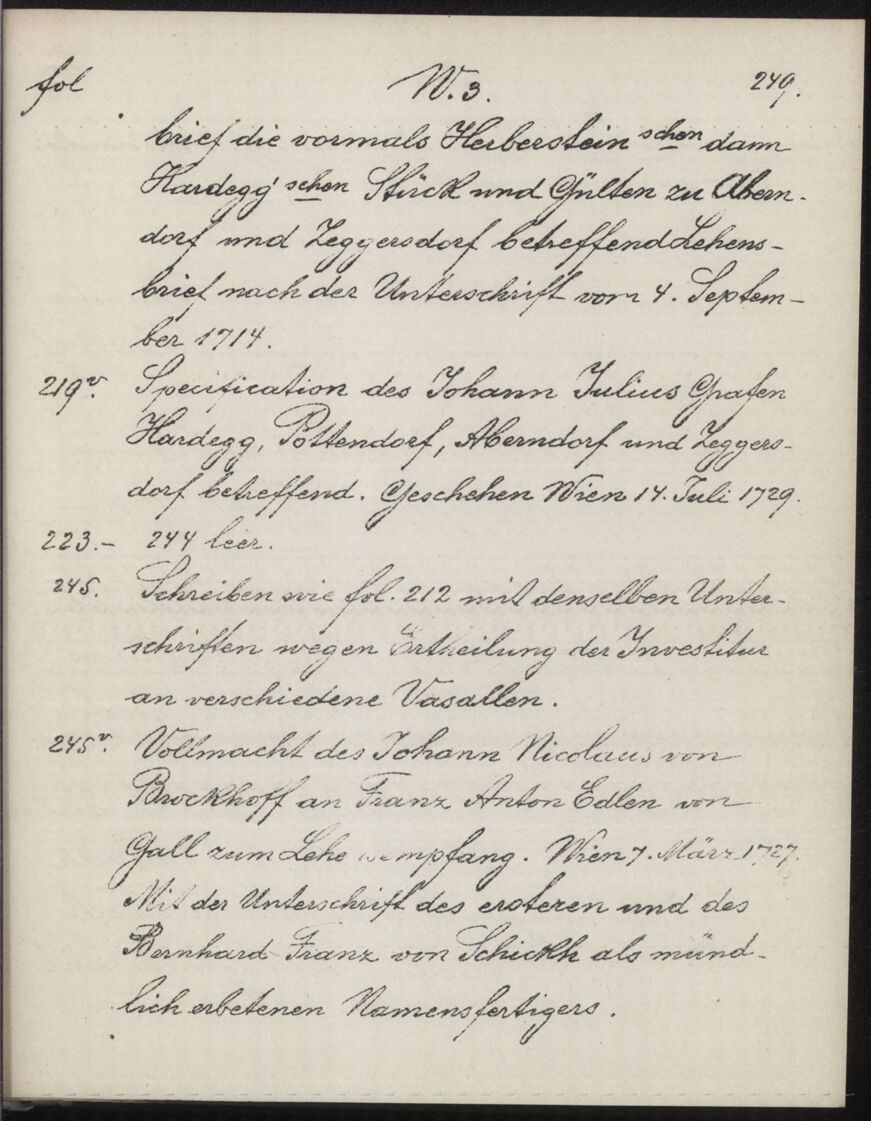 fol W. 3. 249.
brief die vormals Herberstein schen dann
Hardegg' schen Stück und Gülten zu Abern-
dorf und Zeggersdorf betreffend Lehens-
brief nach der Unterschrift vom 4. Septem-
ber 1714.
219v. Specification des Johann Julius Grafen
Hardegg, Pottendorf, Aberndorf und Zeggers-
dorf betreffend. Geschehen Wien 14. Juli 1729.
223.- 244 leer.
245. Schreiben wie fol. 212 mit denselben Unter-
schriften wegen Ertheilung der Investitur
an verschiedene Vasallen.
245v. Vollmacht des Johann Nicolaus von
Brockhoff an Franz Anton Edlen von
Gall zum Lehe empfang. Wien 7. März 1727.
Mit der Unterschrift des ersteren und des
Bernhard Franz von Schickh als münd-
lich erbetenen Namensfertigers.